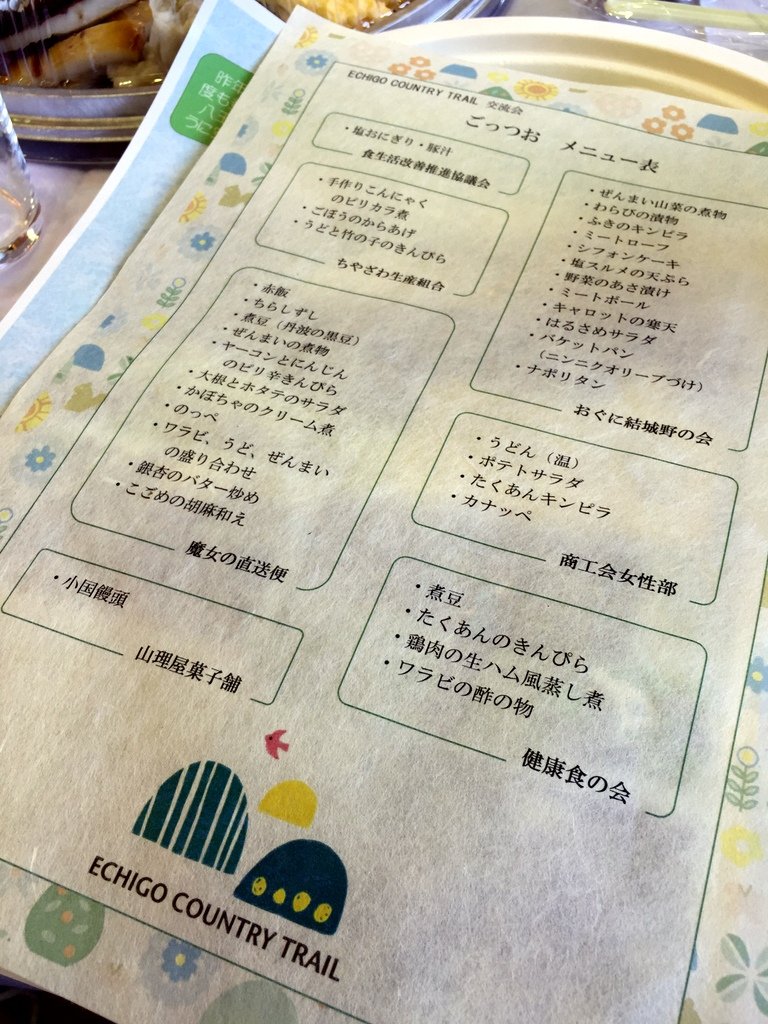 ECHIGO COUNTRY TRAIL 交流会
ごっつお メニュー表
・塩おにぎり・豚汁
食生活改善推進協議会
・手作りこんにゃく
のピリカラ煮
・ごぼうのからあげ
・うどと竹の子のきんぴら
ちやざわ生産組合
・赤飯
・ちらしずし
・煮豆（丹波の黒豆）
・ぜんまいの煮物
・ヤーコンとにんじん
のピリ辛きんぴら
・大根とホタテのサラダ
・かぼちゃのクリーム煮
・のっぺ
・ワラビ、うど、ぜんまい
の盛り合わせ
・銀杏のバター炒め
・こごめの胡麻和え
魔女の直送便
・小国饅頭
山理屋菓子舗
・ぜんまい山菜の煮物
・わらびの漬物
・ふきのキンピラ
・ミートローフ
・シフォンケーキ
・塩スルメの天ぷら
・野菜のあさ漬け
・ミートボール
・キャロットの寒天
・はるさめサラダ
・バケットパン
（ニンニクオリーブづけ）
・ナポリタン
おぐに結城野の会
・うどん（温）
・ポテトサラダ
・たくあんキンピラ
・カナッペ
商工会女性部
・煮豆
・たくあんのきんぴら
・鶏肉の生ハム風蒸し煮
・ワラビの酢の物
健康食の会
ECHIGO COUNTRY TRAIL
昨年
度も
うに